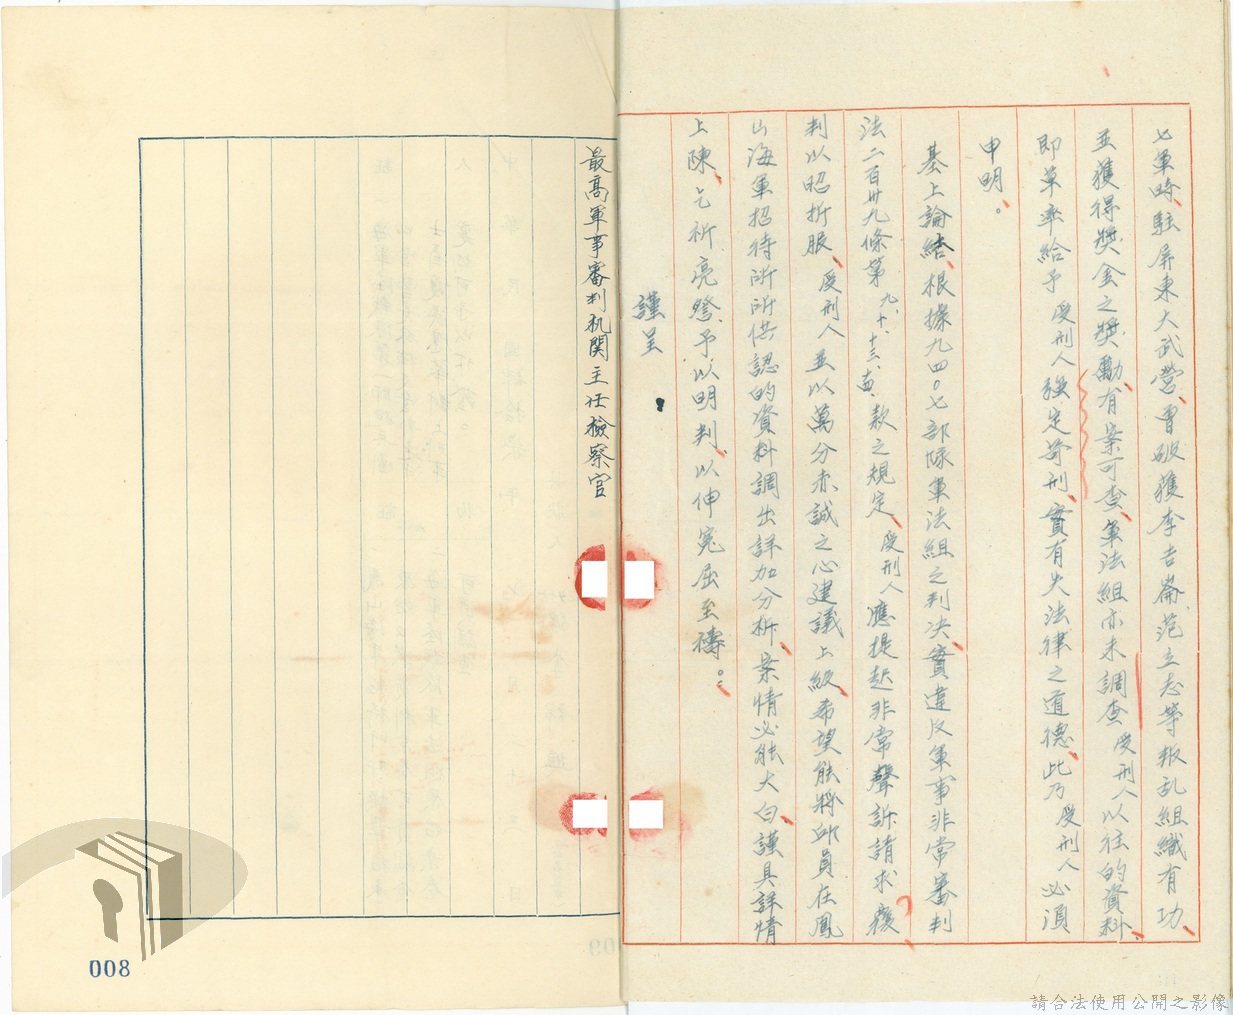 七軍時、駐屏東大武營、曾破獲李吉崙、范立志等叛乱組織有功、
並獲得獎金之獎勵、有案可查、軍法組亦未調查受刑人以往的資料、
即草率給予受刑人強定苛刑、實有失法律之道德、此乃受刑人必須
申明。
基上論結、根據九四〇七部隊軍法組之判決、實違反軍事非常審判
法二百卅九條第九、十、十三、 款之規定、受刑人應提起非常聲訴請求覆
判以昭折服、受刑人並以萬分赤誠之心建議上級、希望能將邱員在鳳
山海軍招待所所供認的資料調出詳加分析、案情必能大白、謹具詳情
上陳、乞祈亮詧、予以明判、以伸冤屈至禱。
謹呈
最高軍事審判机関主任檢察官
008
請合法使用公開之影像